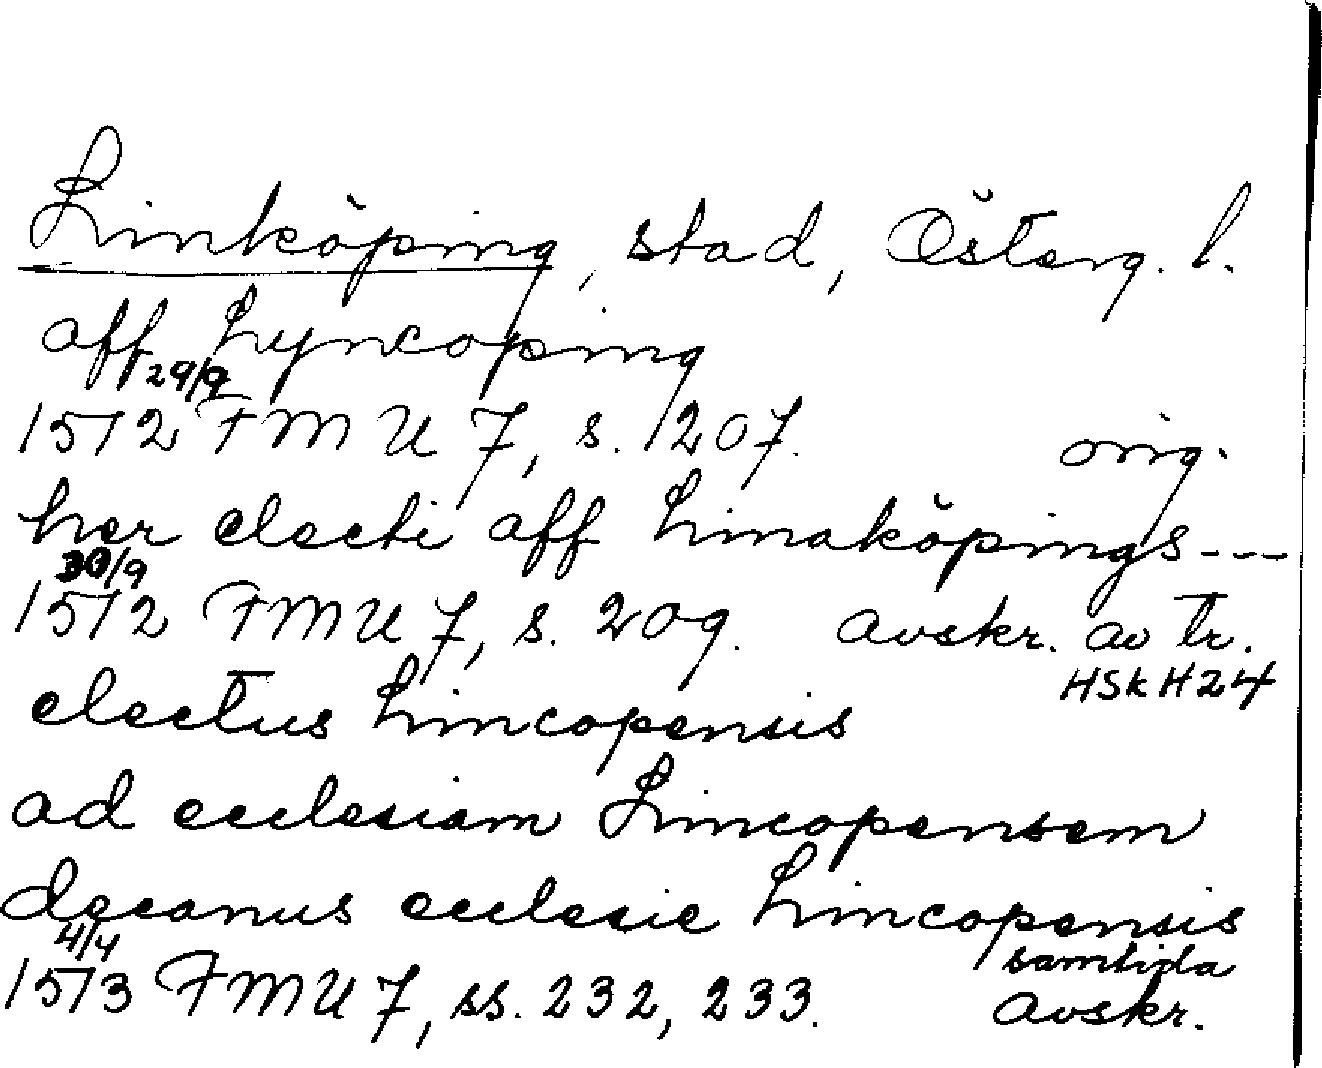 Linköping, stad, Österg. l.
aff Lyncoping
29/9
1512 FMU 7, s. 207. orig.
her electi aff Linaköpings---
30/9
1512 FMU 7, s. 209. avskr. av tr.
HSk H24
electus Lincopensis
ad ecclesiam Lincopensem
decanus ecclesie Lincopensis
4/4 samtida
1513 FMU 7, ss. 232, 233. avskr.